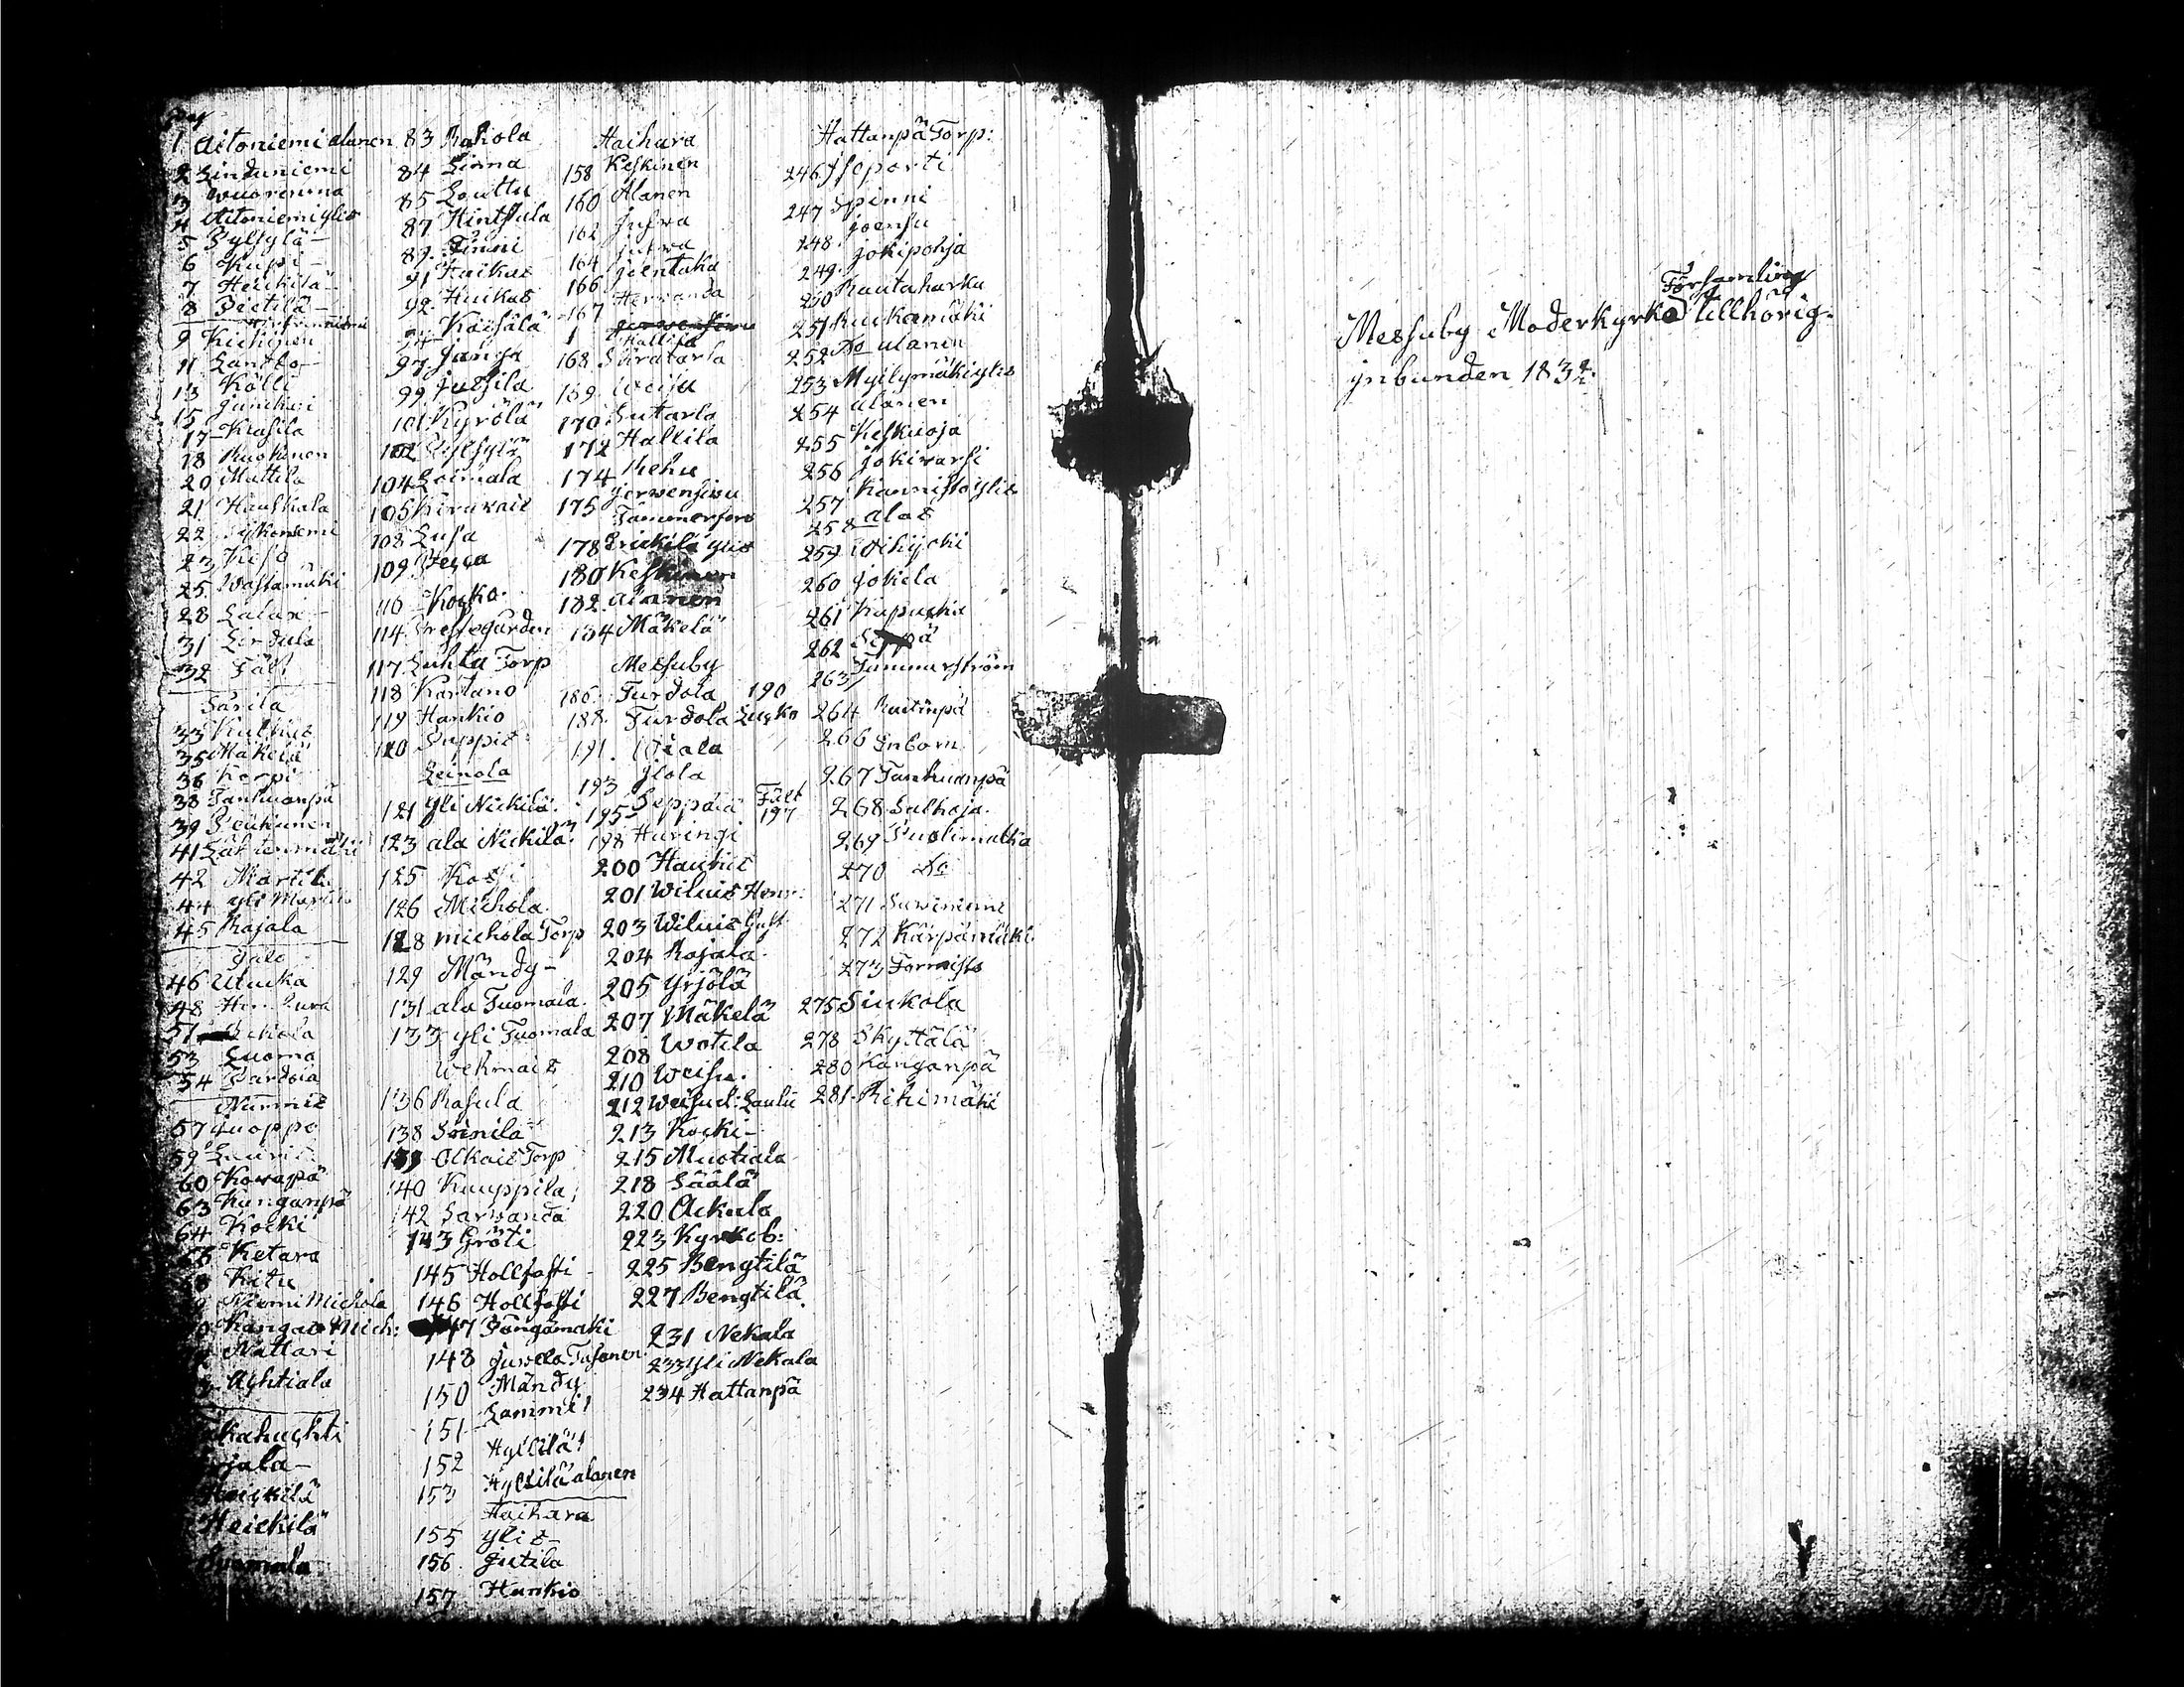 pag
1 Aitoniemi alanen
2 Linduniemi
3 Wuorenma
4 Aitoniemi ylis
5 Pylsylä -
6 Kupi -
7 Heickilä -
8 Pietilä -
9 Kiekynen
11 Lantto -
13 Kolli
15 Junckari
17 Krasila
18 Ruokonen
20 Mattila
21 Hauskala
22
23 Keso
25 Wastamäki
28 Lalax -
31 Lindula
32 Fält
Tarila
33 Kulkus
35 Mäkelä
36 Korpi
38 Tanhuanpä
39 Peuhunen
41 Lahtenmäki
42 Martila
44 yli Martila
45 Rajala
46
48
51
53 Suomo
54 Pardola
Nurmis
57 Kuoppo
59 Lauri
60 Kovapä
63 Kanganpä
64 Kocki
Ketara
Kitu
Niemi Mickola
Kangas Mick:
Nattari
Ajhtiala
kahuchti
rjala -
Heickilä
Heickilä
83 Rahola
84 Linna
85 Louttu
87 Hintsula
89 Finni
91 Haikas
92 Huikas
94 Kaisälä
97 Janga
99 Jussila
101 Kyrölä
102 Pylsylä
104 Loimala
105 Kiruvais
108 Lusa
109 Pecca
110 Kocko
114 Prestegården
117 Luhta Torp
118 Kartano
119 Hankio
120 Suppis
Leinola
121 Yli Nickilä
123 ala Nickilä
125 Koski
126 Mickola
128 mickola Torp
129 Mändy -
131 ala Tuomala
133 yli Tuomala
Wehmais
136 Rasula
138 Soinila
139 Olkais Torp
140 Kauppila
142 Sarvanda
143 Gröti
145 Hollfasti -
146 Hollfasti
147 Pangamäki
148 Juvela Tusanen
150 Mändy
151 Lammi
152 Hyllilä
153 Hyllilä alanen
Haihara
155 ylis -
156 Jutila
157 Hankio
Haihara
158 Keskinen
160 Alanen
162 Jusva
164 Jusva
166 Jäentaka
167 Hervanda
Hallila
168 Suratarla
169 Weisu
170 Sutarla
172 Hallila
174 Rehu
175 Jervensivu
Tammerfors
178 Erickilä ylis
180 Keskinen
182 alanen
184 Mäkelä
Messuby
186 Turdola 190
188 Turdola Lucko
191 Wiala
193 Jlola
195 Seppälä Fält 197
198 Huringi
200 Hauhis
201 Wiluis Henr:
203 Wiluis Gust
204 Rajala
205 Yrjölä
207 Mäkelä
208 Wotila
210 Weisu
212 Weisu d: Laulu
213 Kocki -
215 Muotiala
218 Säälä
220 Ackula
223 Kyrkob:
225 Bengtilä
227 Bengtilä
231 Nekala
233 yli Nekala
234 Hattanpä
Hattanpä Torp:
246 Jsoporti
247 Spinni
Joensu
248 Jokipohja
249 Rautaharku
250 Ruukamäki
251
252 Do alanen
253 Myllymäki ylis
254 alanen
255 Keskuoja
256 Jokivarsi
257 Kannisto ylis
258 alas
259 Wihijoki
260 Jokela
261 Kapucka
262 Seppä
263 Tammerström
264 Raitinpä
266 Enborn
267 Tanhuanpä
268 Sulhoja
269 Puolimatka
270 Do
271 Suviniemi
272 Kärpämäki
273 Formisto
275 Siukola
278 Skyttälä
280 Kanganpä
281 Rikimäki
Församling
Messuby Moderkyrko tillhörig.
jnbunden 1832.